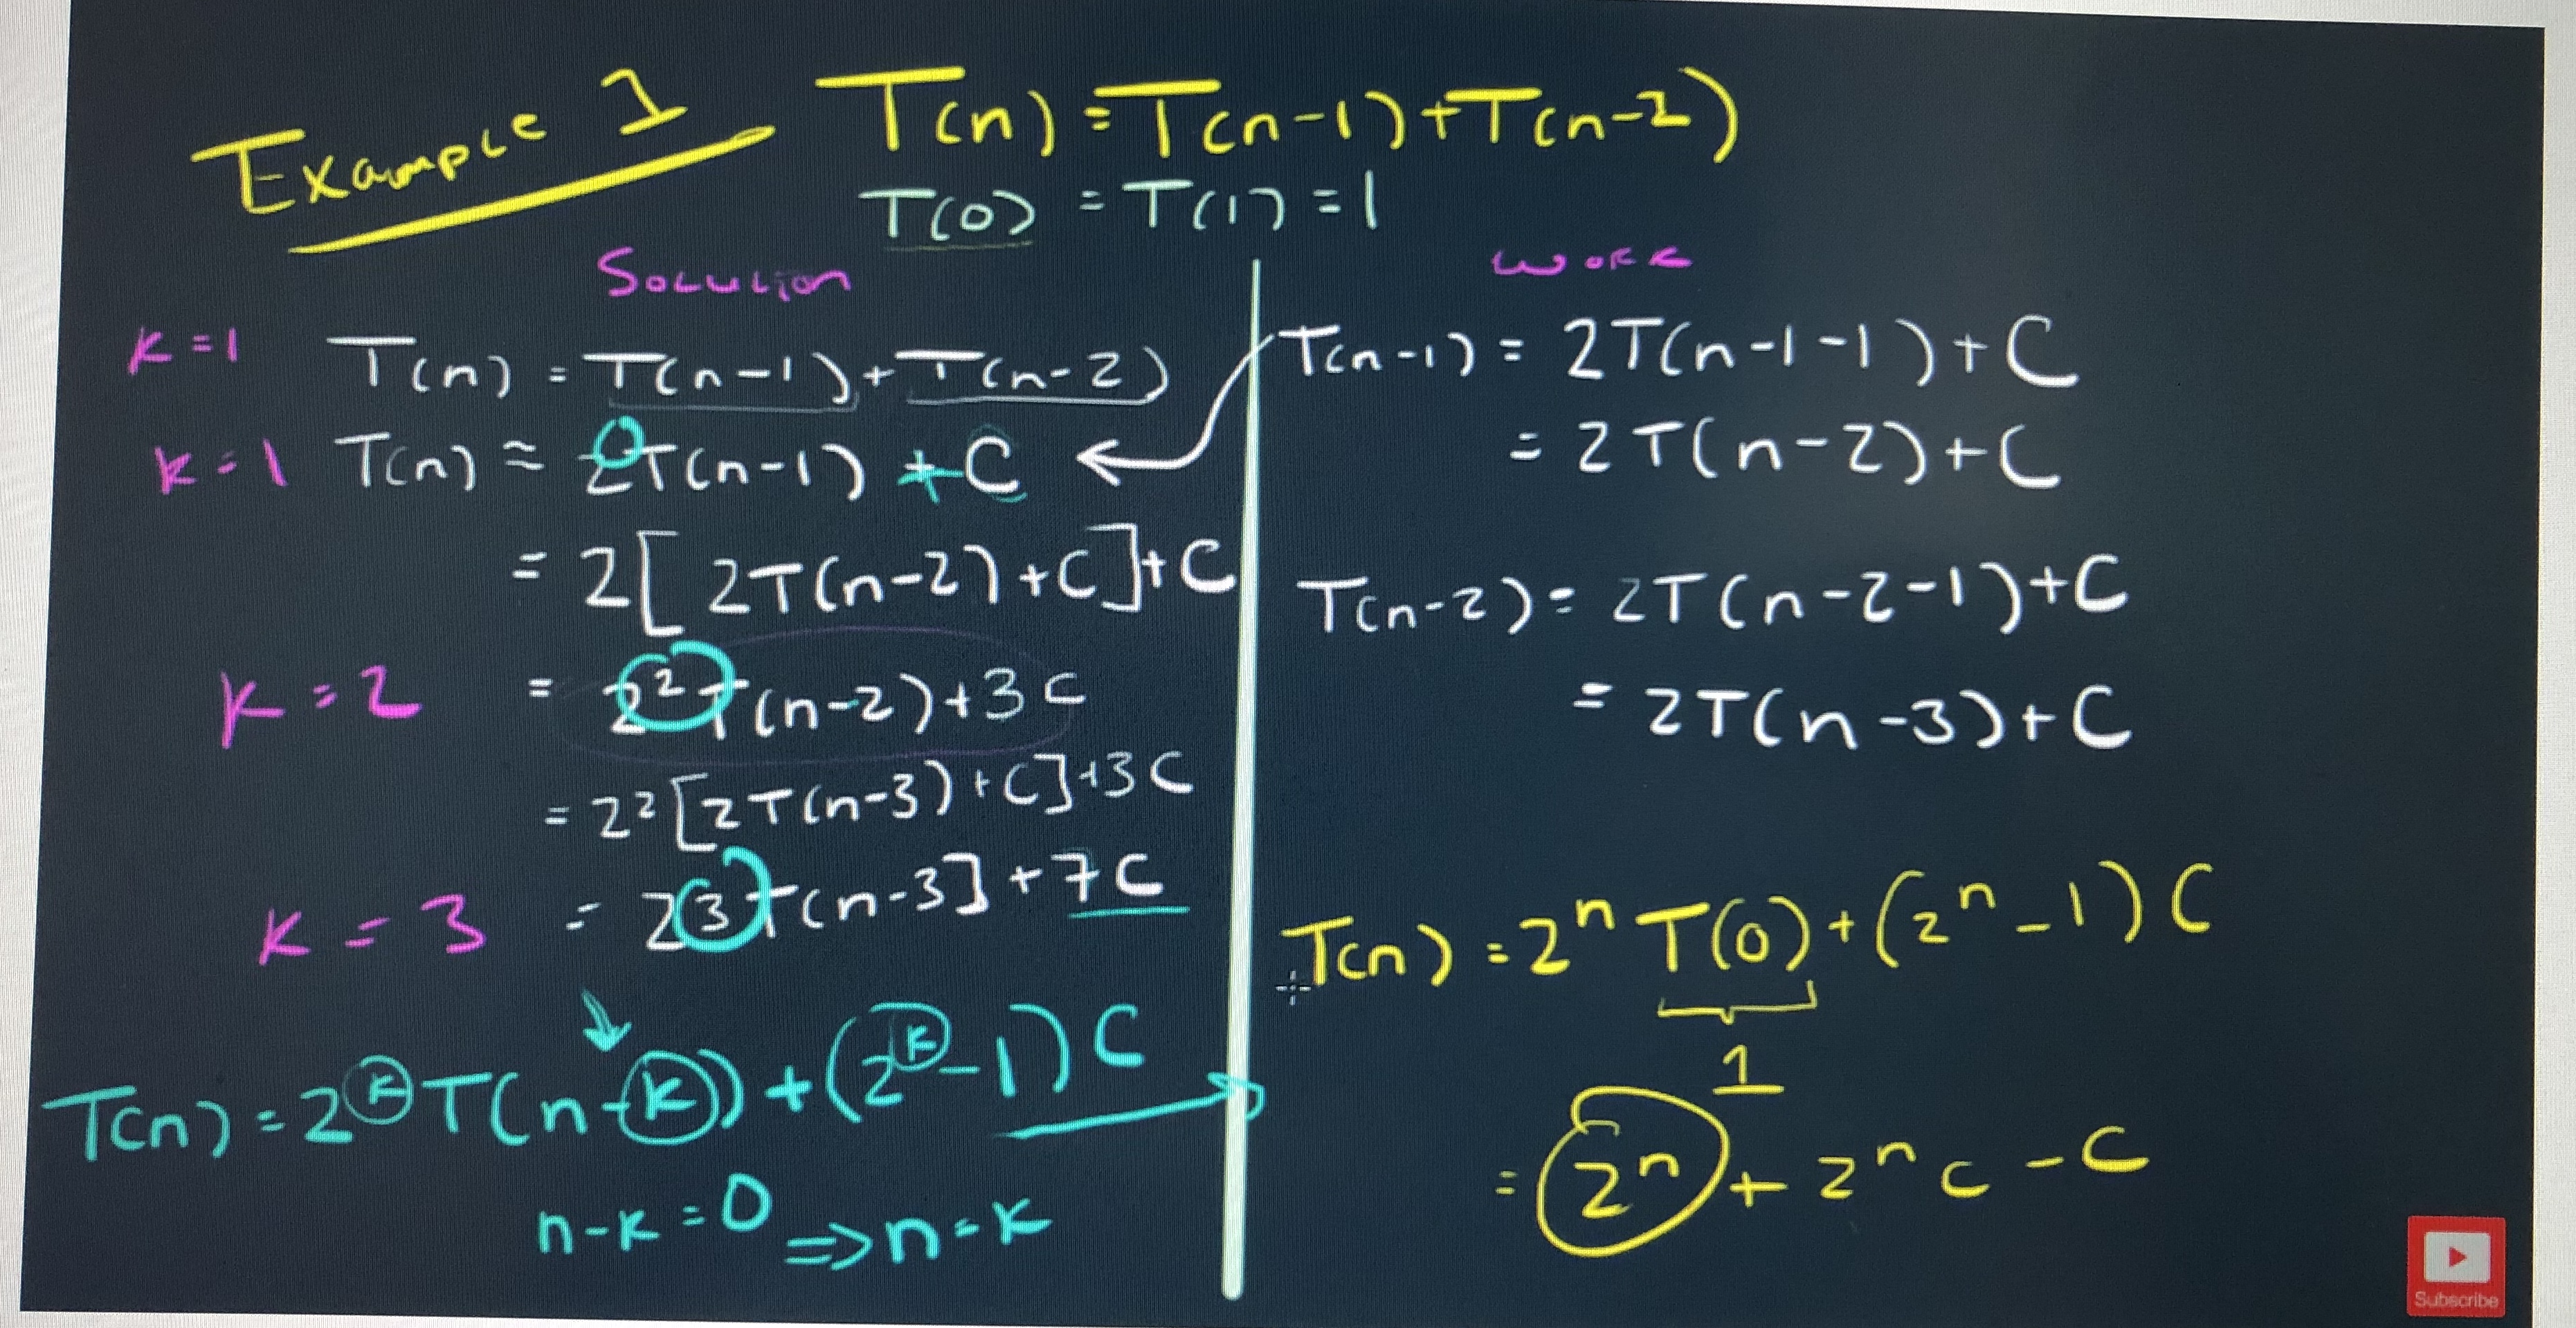 Example 1 T(n) = T(n-1) + T(n-2)
T(0) = T(1) = 1
Solution
k=1 T(n) = T(n-1) + T(n-2)
k=1 T(n) ≈ 2T(n-1) + C
= 2[2T(n-2)+C]+C
k=2 = 2²T(n-2)+3C
= 2²[2T(n-3)+C]+3C
k=3 = 2³T(n-3]+7C
T(n) = 2ᵏT(n-k)) + (2ᵏ-1)C
n-k=0 ⇒ n=k
Work
T(n-1) = 2T(n-1-1)+C
= 2T(n-2)+C
T(n-2) = 2T(n-2-1)+C
= 2T(n-3)+C
T(n) = 2ⁿT(0)+(2ⁿ-1)C
1
= 2ⁿ + 2ⁿC - C
Subscribe